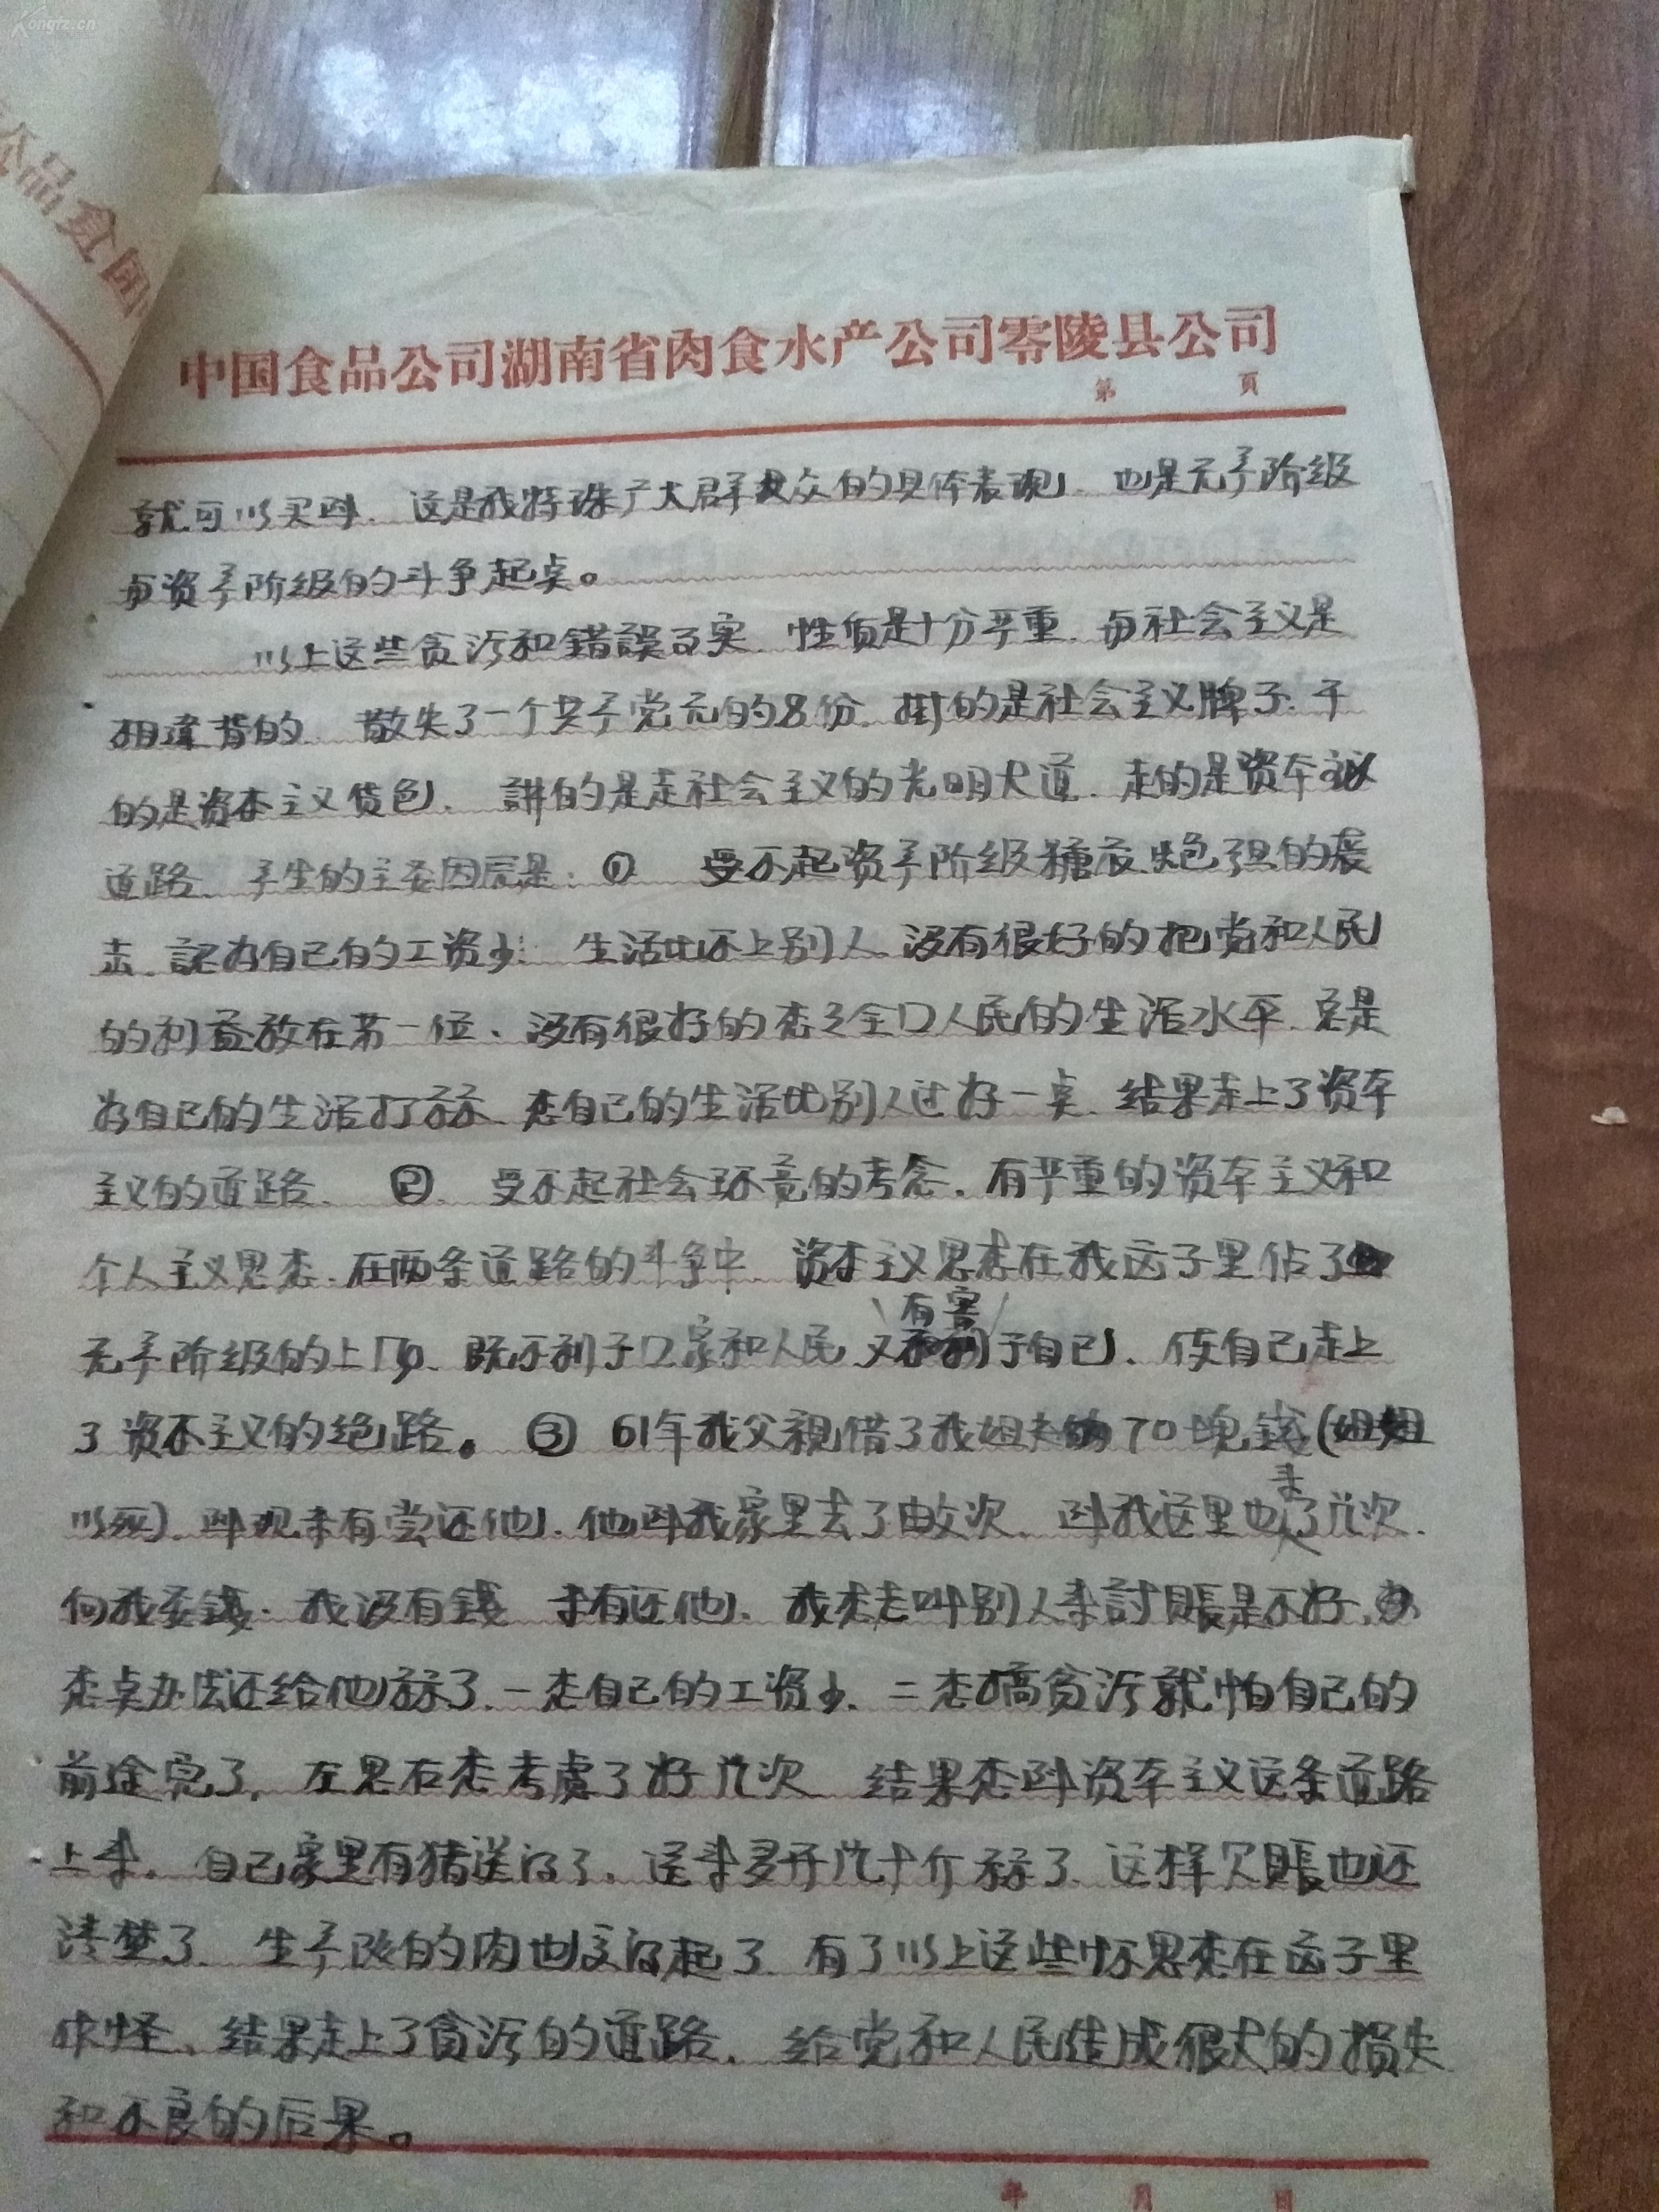 Kongfz.cn
品食国
中国食品公司湖南省肉食水产公司零陵县公司
第 頁
就可以买到. 这是我特殊广大群众的具体表现. 也是无产阶级
与资产阶级的斗争起点。
以上这些贪污和錯誤事实. 性质是十分严重. 与社会主义是
相违背的. 散失了一个共产党元的身份. 掛的是社会主义牌子. 干
的是资本主义货色. 講的是走社会主义的光明大道. 走的是资本主义
道路. 产生的主要因原是: ① 受不起资产阶级糖衣炮弹的袭
击. 認为自己的工资少. 生活比不上别人. 没有很好的把党和人民
的利益放在第一位、没有很好的想想全口人民的生活水平. 总是
为自己的生活打. 想自己的生活比别人过好一点. 结果走上了资本
主义的道路. ② 受不起社会环竟的考念. 有严重的资本主义和
个人主义思想. 在两条道路的斗争中. 资本主义思想在我脑子里佔了
无产阶级的上风. 既不利于口家和人民 又有害于自己. 使自己走上
了资本主义的绝路。 ③ 61年我父親借了我姐夫的70塊錢(姐姐
以死). 到现未有尝还他. 他到我家里去了由次. 到我这里也来了几次.
向我要錢. 我没有錢 未有还他. 我想老叫别人来討賬是不好.
想点办法还给他了. 一想自己的工资少. 二想搞贪污就怕自己的
前途完了. 左思右想考慮了好几次 结果想到资本主义这条道路
上来. 自己家里有猪送了. 送来多开几十斤了. 这样欠賬也还
清楚了. 生产队的肉也交起了. 有了以上这些坏思想在脑子里
作怪、结果走上了贪污的道路. 给党和人民造成很大的损失
和不良的后果。
年 月 日